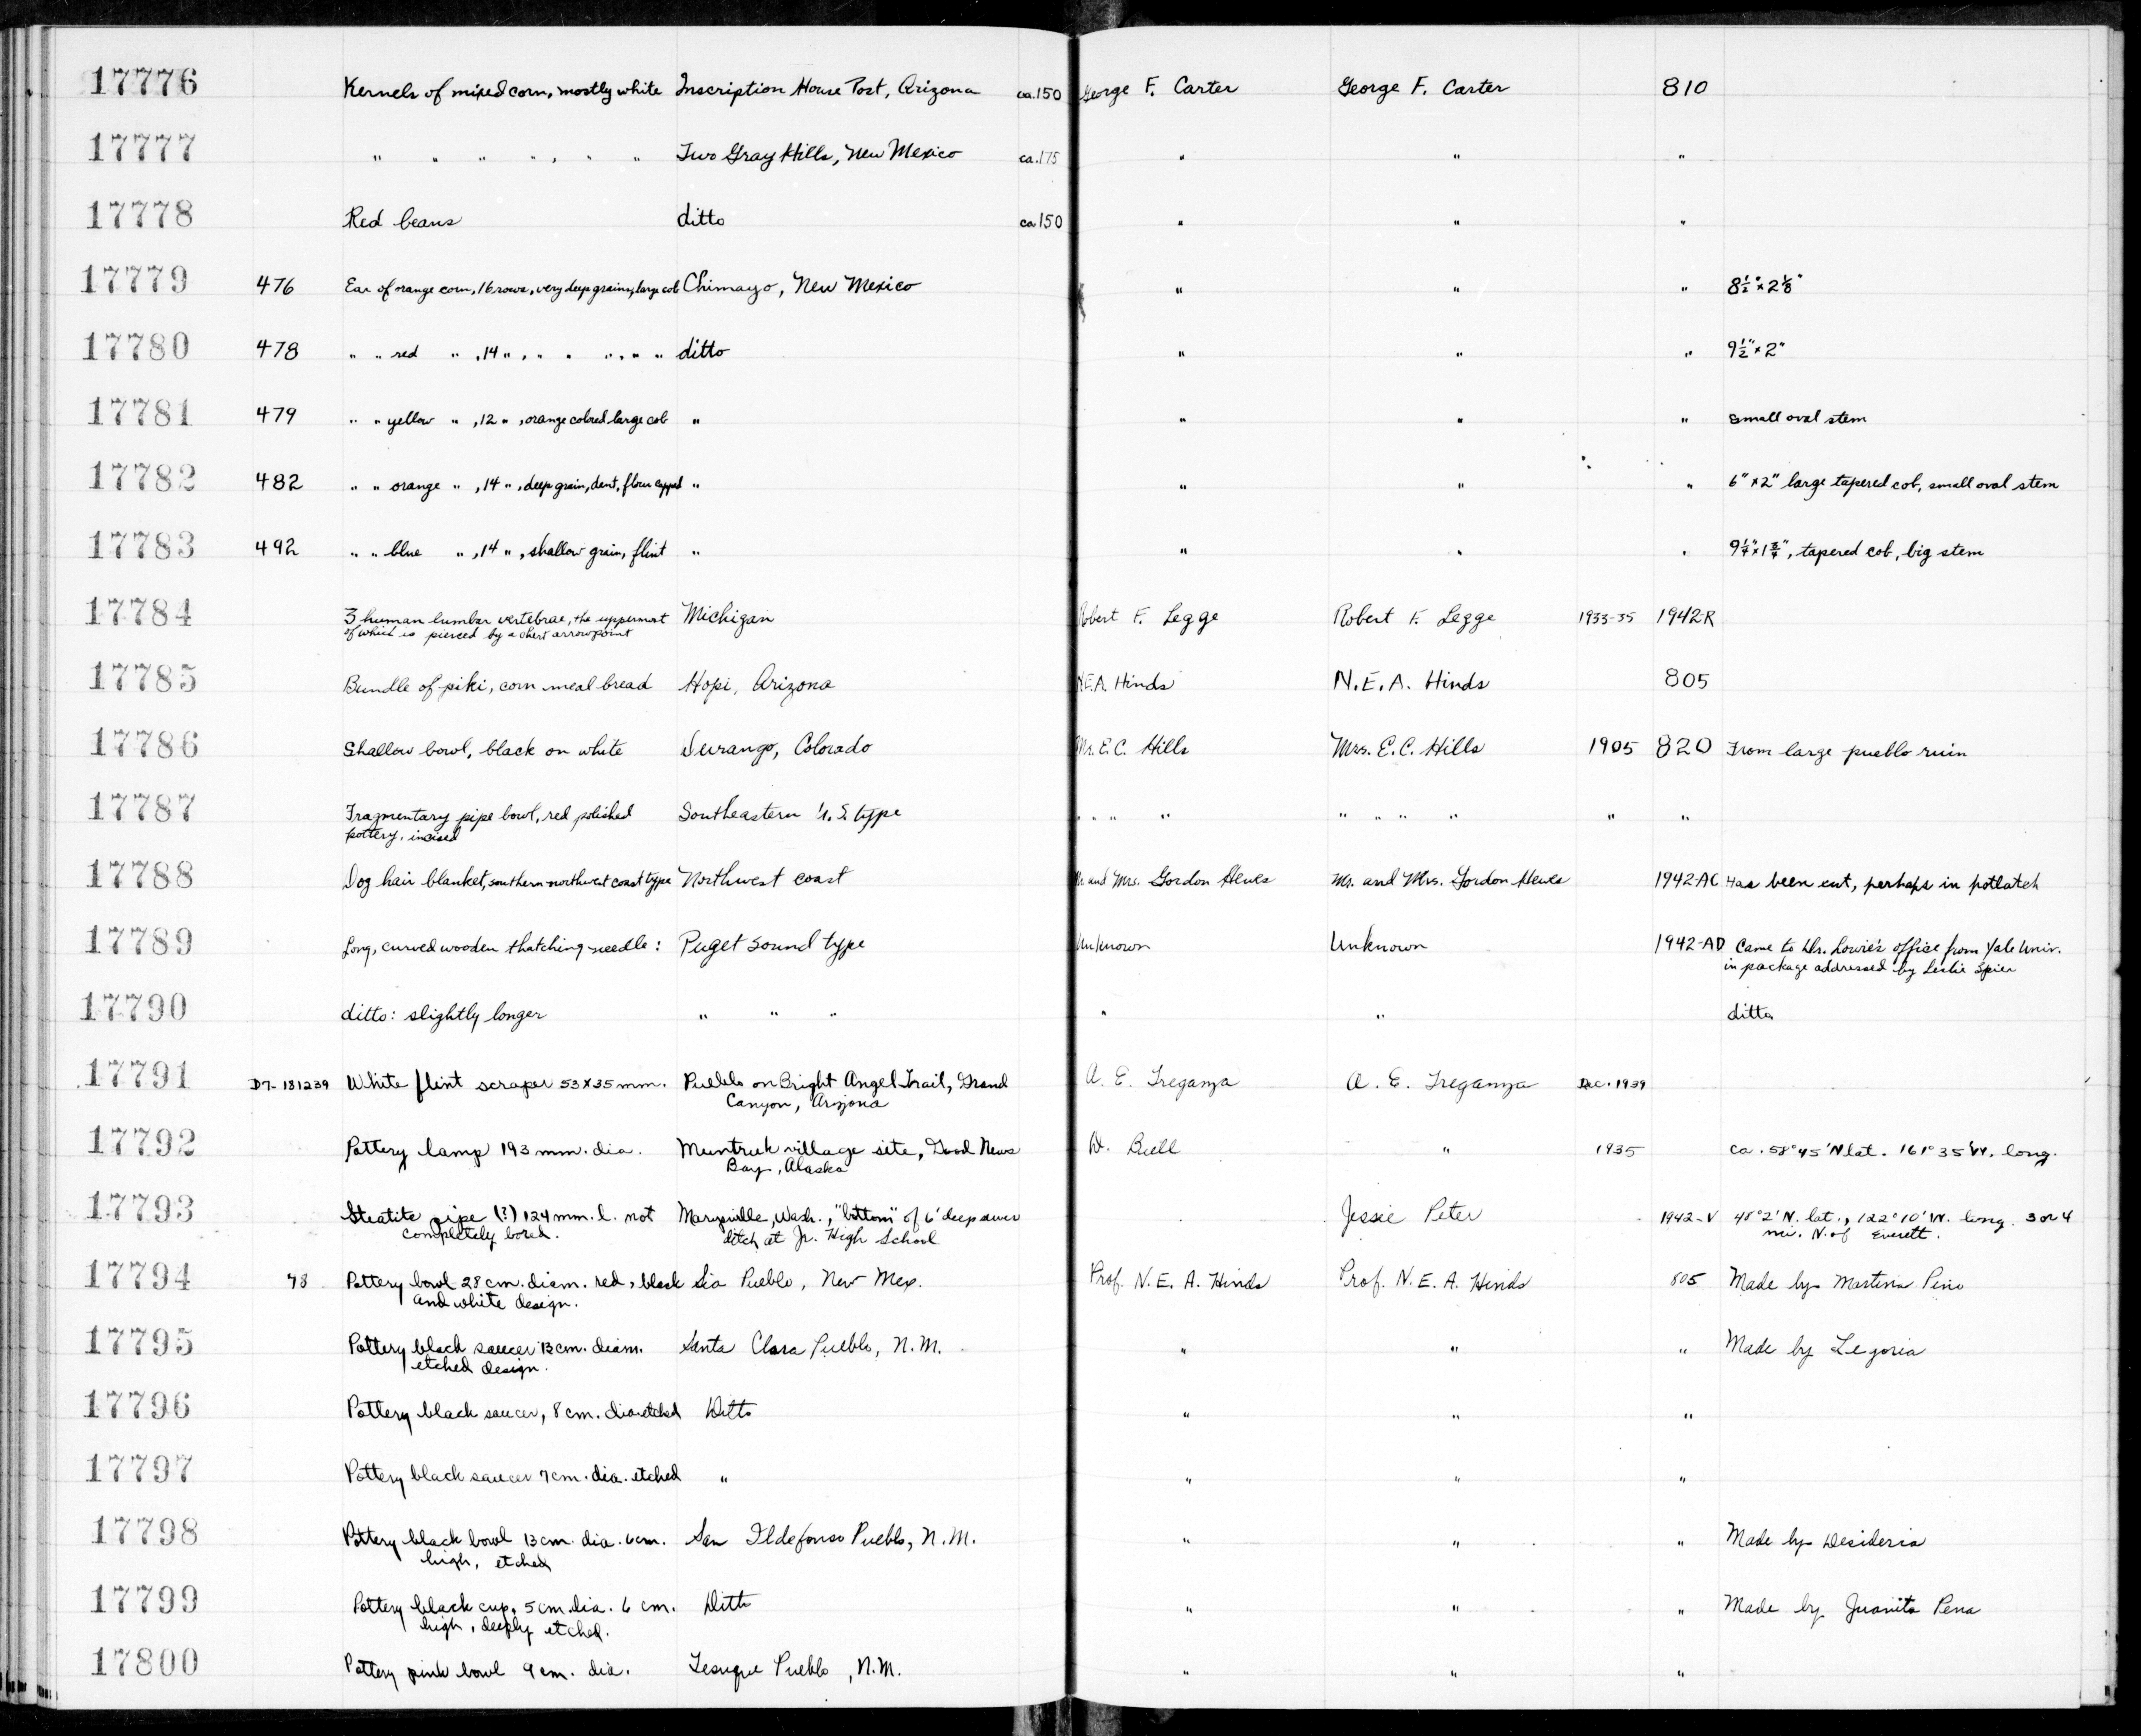 17776 Kernels of mixed corn, mostly white Inscription House Post, Arizona ca.150 George F. Carter George F. Carter 810
17777 " " " " , " " Two Gray Hills, New Mexico ca.175 " " "
17778 Red beans ditto ca 150 " " "
17779 476 Ear of orange corn, 16 rows, very deep grains, large cob Chimayo, New Mexico " " " 8½" x 2⅛"
17780 478 " " red " , 14 " , " " " , " " ditto " " " 9½" x 2"
17781 479 " " yellow " , 12 " , orange colored large cob " " " " small oval stem
17782 482 " " orange " , 14 " , deep grain, dent, flour capped " " " " 6" x 2" large tapered cob, small oval stem
17783 492 " " blue " , 14 " , shallow grain, flint " " " " 9¼" x 1¾", tapered cob, big stem
17784 3 human lumbar vertebrae, the uppermost Michigan Robert F. Legge Robert F. Legge 1933-35 1942-R
of which is pierced by a chert arrowpoint
17785 Bundle of piki, corn meal bread Hopi, Arizona N.E.A. Hinds N.E.A. Hinds 805
17786 Shallow bowl, black on white Durango, Colorado Mrs. E.C. Hills Mrs. E.C. Hills 1905 820 From large pueblo ruin
17787 Fragmentary pipe bowl, red polished Southeastern U.S. type " " " " " " " " " "
pottery, incised
17788 Dog hair blanket, southern northwest coast type Northwest coast Mr. and Mrs. Gordon Hewes Mr. and Mrs. Gordon Hewes 1942-AC Has been cut, perhaps in potlatch
17789 Long, curved wooden thatching needle : Puget Sound type Unknown Unknown 1942-AD Came to Dr. Lowie's office from Yale Univ.
in package addressed by Leslie Spier
17790 ditto: slightly longer " " " " " ditto
17791 D7-181239 White flint scraper 53 x 35 mm. Pueblo on Bright Angel Trail, Grand A. E. Treganza A. E. Treganza Dec. 1939
Canyon, Arizona
17792 Pottery lamp 193 mm. dia. Mumtrak village site, Good News D. Buell " 1935 ca. 58°45' N lat. 161°35' W. long.
Bay, Alaska
17793 Steatite pipe (?) 124 mm. l. not Marysville, Wash., "bottom" of 6' deep sewer Jessie Peter 1942-V 48°2' N. lat., 122°10' W. long. 3 or 4
completely bored. ditch at Jr. High School mi. N. of Everett.
17794 48 Pottery bowl 28 cm. diam. red, black Sia Pueblo, New Mex. Prof. N. E. A. Hinds Prof. N. E. A. Hinds 805 Made by Martina Pino
and white design.
17795 Pottery black saucer 13 cm. diam. Santa Clara Pueblo, N.M. " " " Made by Legoria
etched design.
17796 Pottery black saucer, 8 cm. dia. etched Ditto " " "
17797 Pottery black saucer 7 cm. dia. etched " " " "
17798 Pottery black bowl 13 cm. dia. 6 cm. San Ildefonso Pueblo, N.M. " " " Made by Desideria
high, etched
17799 Pottery black cup, 5 cm. dia. 6 cm. Ditto " " " Made by Juanita Pena
high, deeply etched.
17800 Pottery pink bowl 9 cm. dia. Tesuque Pueblo, N.M. " " "